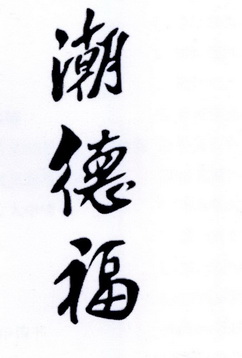 潮德福